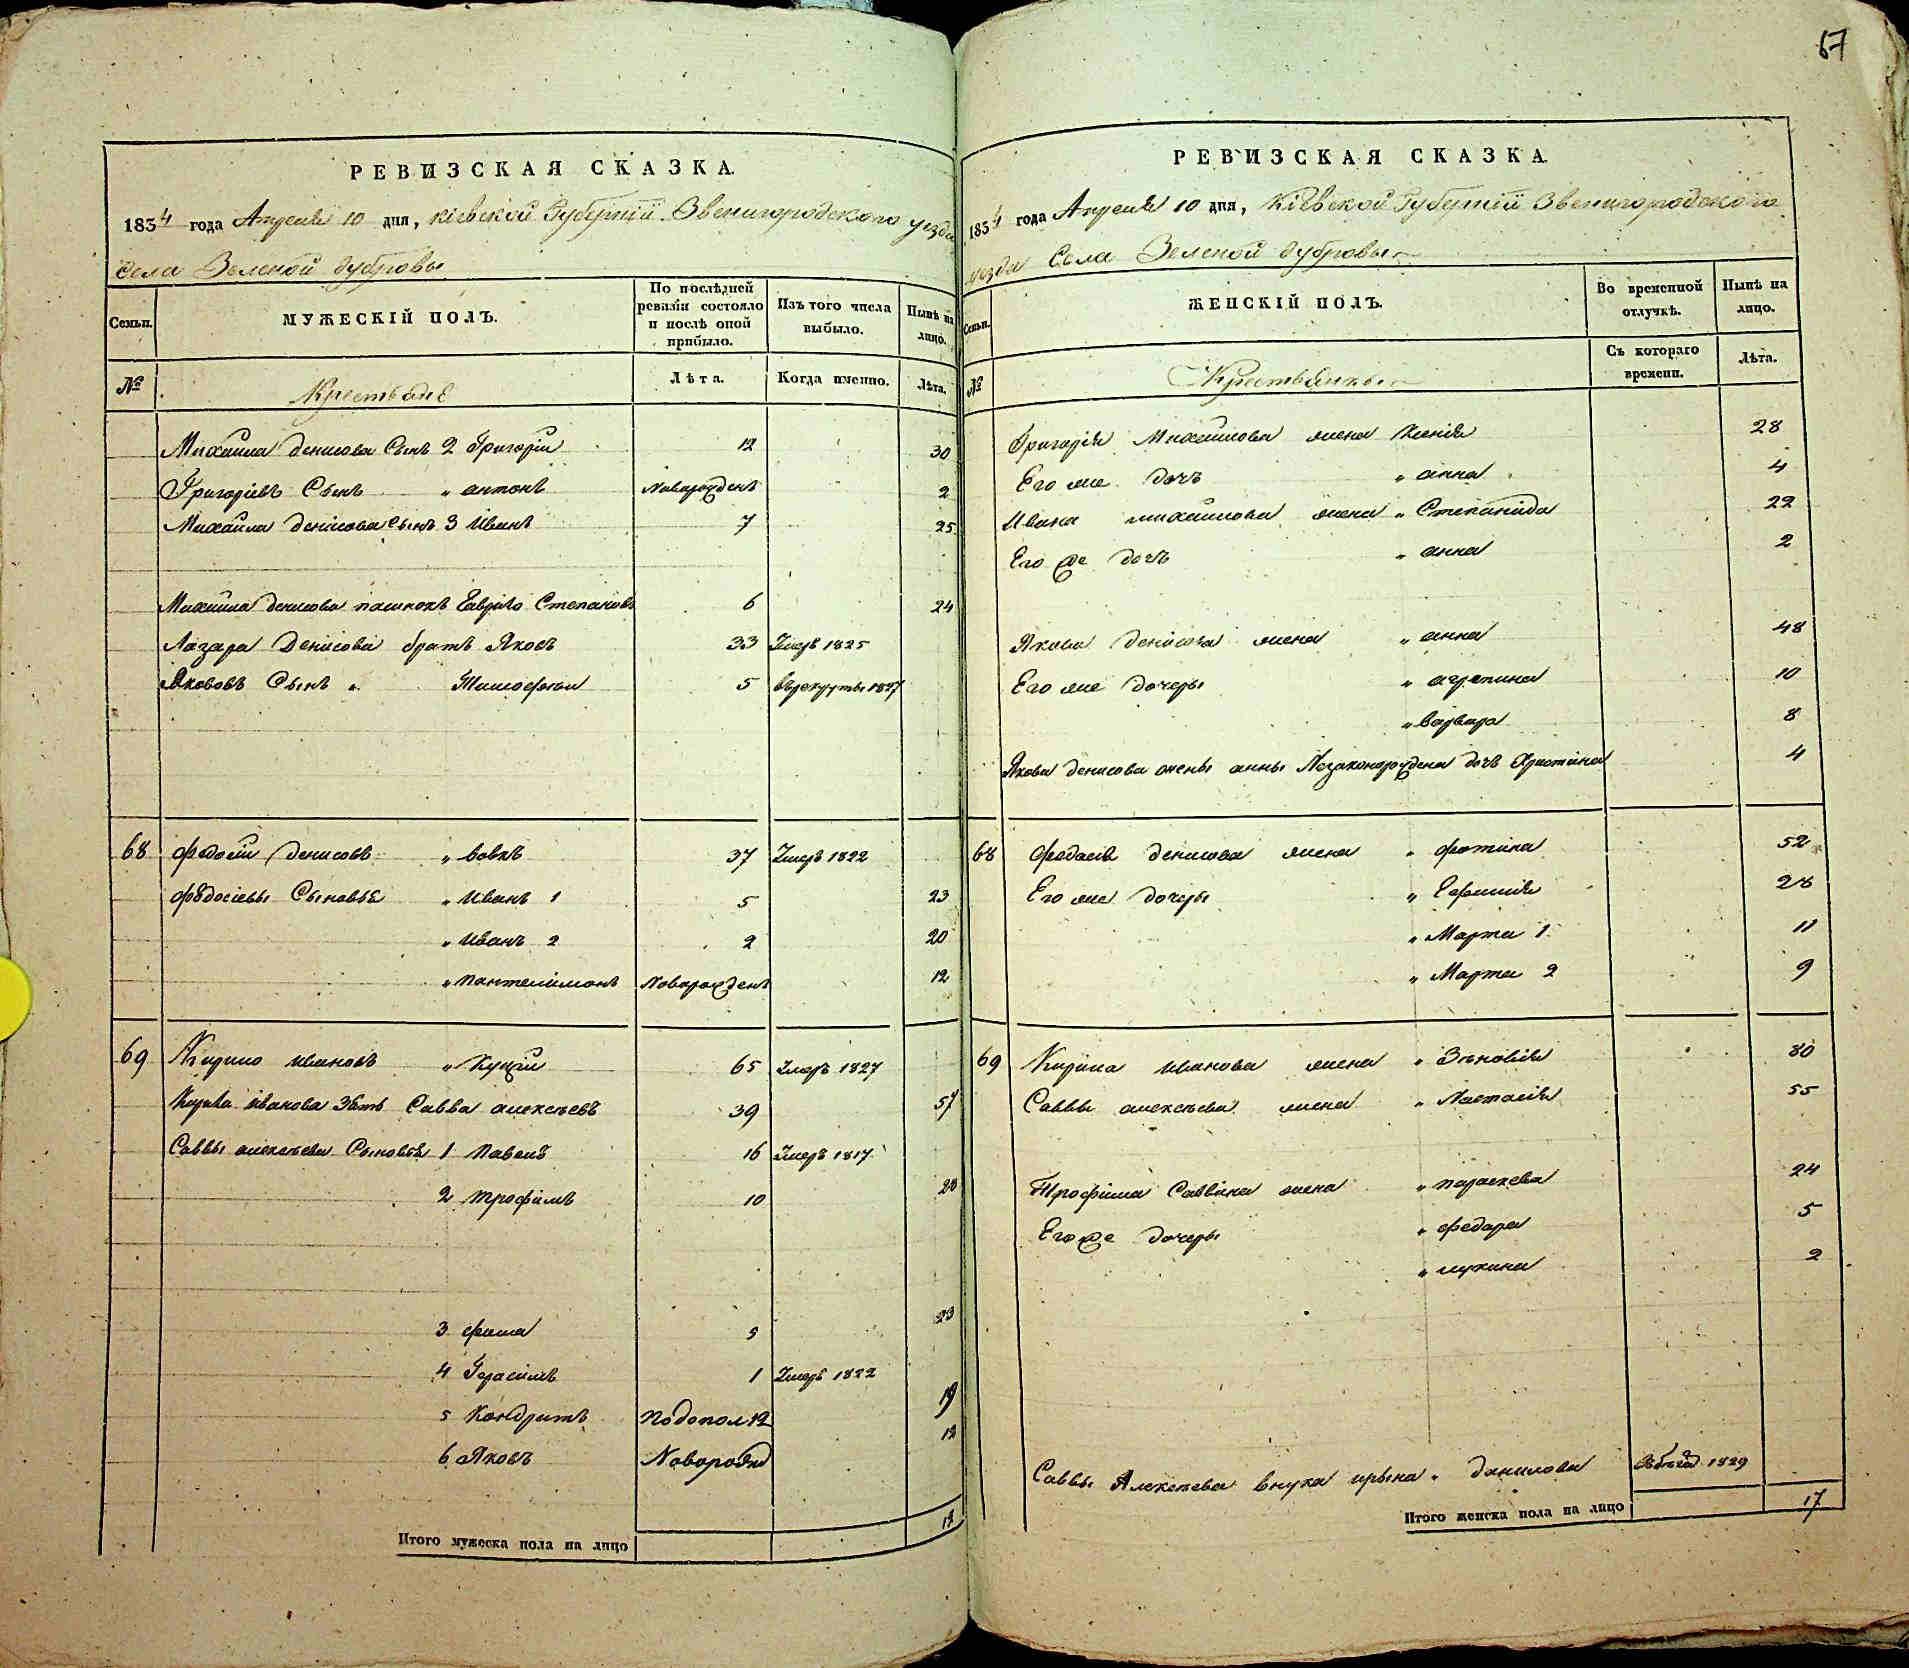 67
РЕВИЗСКАЯ СКАЗКА.
1834 года Апреля 10 дня, Кіевской Губерніи Звенигородского уезда
Села Зеленой дубровы
Семьи.
МУЖЕСКІЙ ПОЛЪ.
По послѣдней ревизіи состояло и послѣ оной прибыло.
Изъ того числа выбыло.
Нынѣ на лицо.
№
Крестьяне
Лѣта.
Когда именно.
Лѣта.
Михаила денисова Сынъ 2 Григорій 12 30
Григоріевъ Сынъ " антонъ Новорожденъ 2
Михаила денисова Сынъ 3 Иванъ 7 25
Михаила денисова пасынокъ Гаврило Степановъ 6 24
Лазаря Денисова братъ Яковъ 33 Умеръ 1825
Яковевъ Сынъ " Тимофей 5 въ рекруты 1827
68 Федосій денисовъ " вовкъ 37 Умеръ 1822
Федосіевы Сыновья " Иванъ 1 5 23
" Иванъ 2 2 20
" Пантелимонъ Новорожденъ 12
69 Кирило ивановъ " Куцій 65 Умеръ 1827
Кирила иванова Зять Савва алексѣевъ 39 57
Саввы алексѣева Сыновья 1 Павелъ 16 Умеръ 1817
2 трофимъ 10 28
3 фома 5 23
4 Герасимъ 1 Умеръ 1822
5 Кондратъ 19
6 Яковъ 12
Итого мужеска пола на лицо 12
РЕВИЗСКАЯ СКАЗКА.
1834 года Апреля 10 дня, Кіевской Губерніи Звенигородского
уезда Села Зеленой дубровы
Семьи.
ЖЕНСКІЙ ПОЛЪ.
Во временной отлучкѣ.
Нынѣ на лицо.
№
Крестьянки
Съ котораго времени.
Лѣта.
Григорія Михаилова жена Ксенія 28
Его же дочъ " анна 4
Ивана михаилова жена " Степанида 22
Его же дочъ " анна 2
Якова денисова жена " анна 48
Его же дочеры " агрепина 10
" варвара 8
Якова денисова жены анны Незаконорождена дочъ Христина 4
68 Федосія денисова жена " фотина 52
Его же дочеры " Евфимія 28
" Марта 1 11
" Марта 2 9
69 Кирила иванова жена " Зѣновія 80
Саввы алексѣева жена " Настасія 55
Трофима Саввина жена " параскева 24
Его же дочеры " федора 5
" лукина 2
Саввы Алексѣева внука ирына " данилова 1829
Итого женска пола на лицо 17